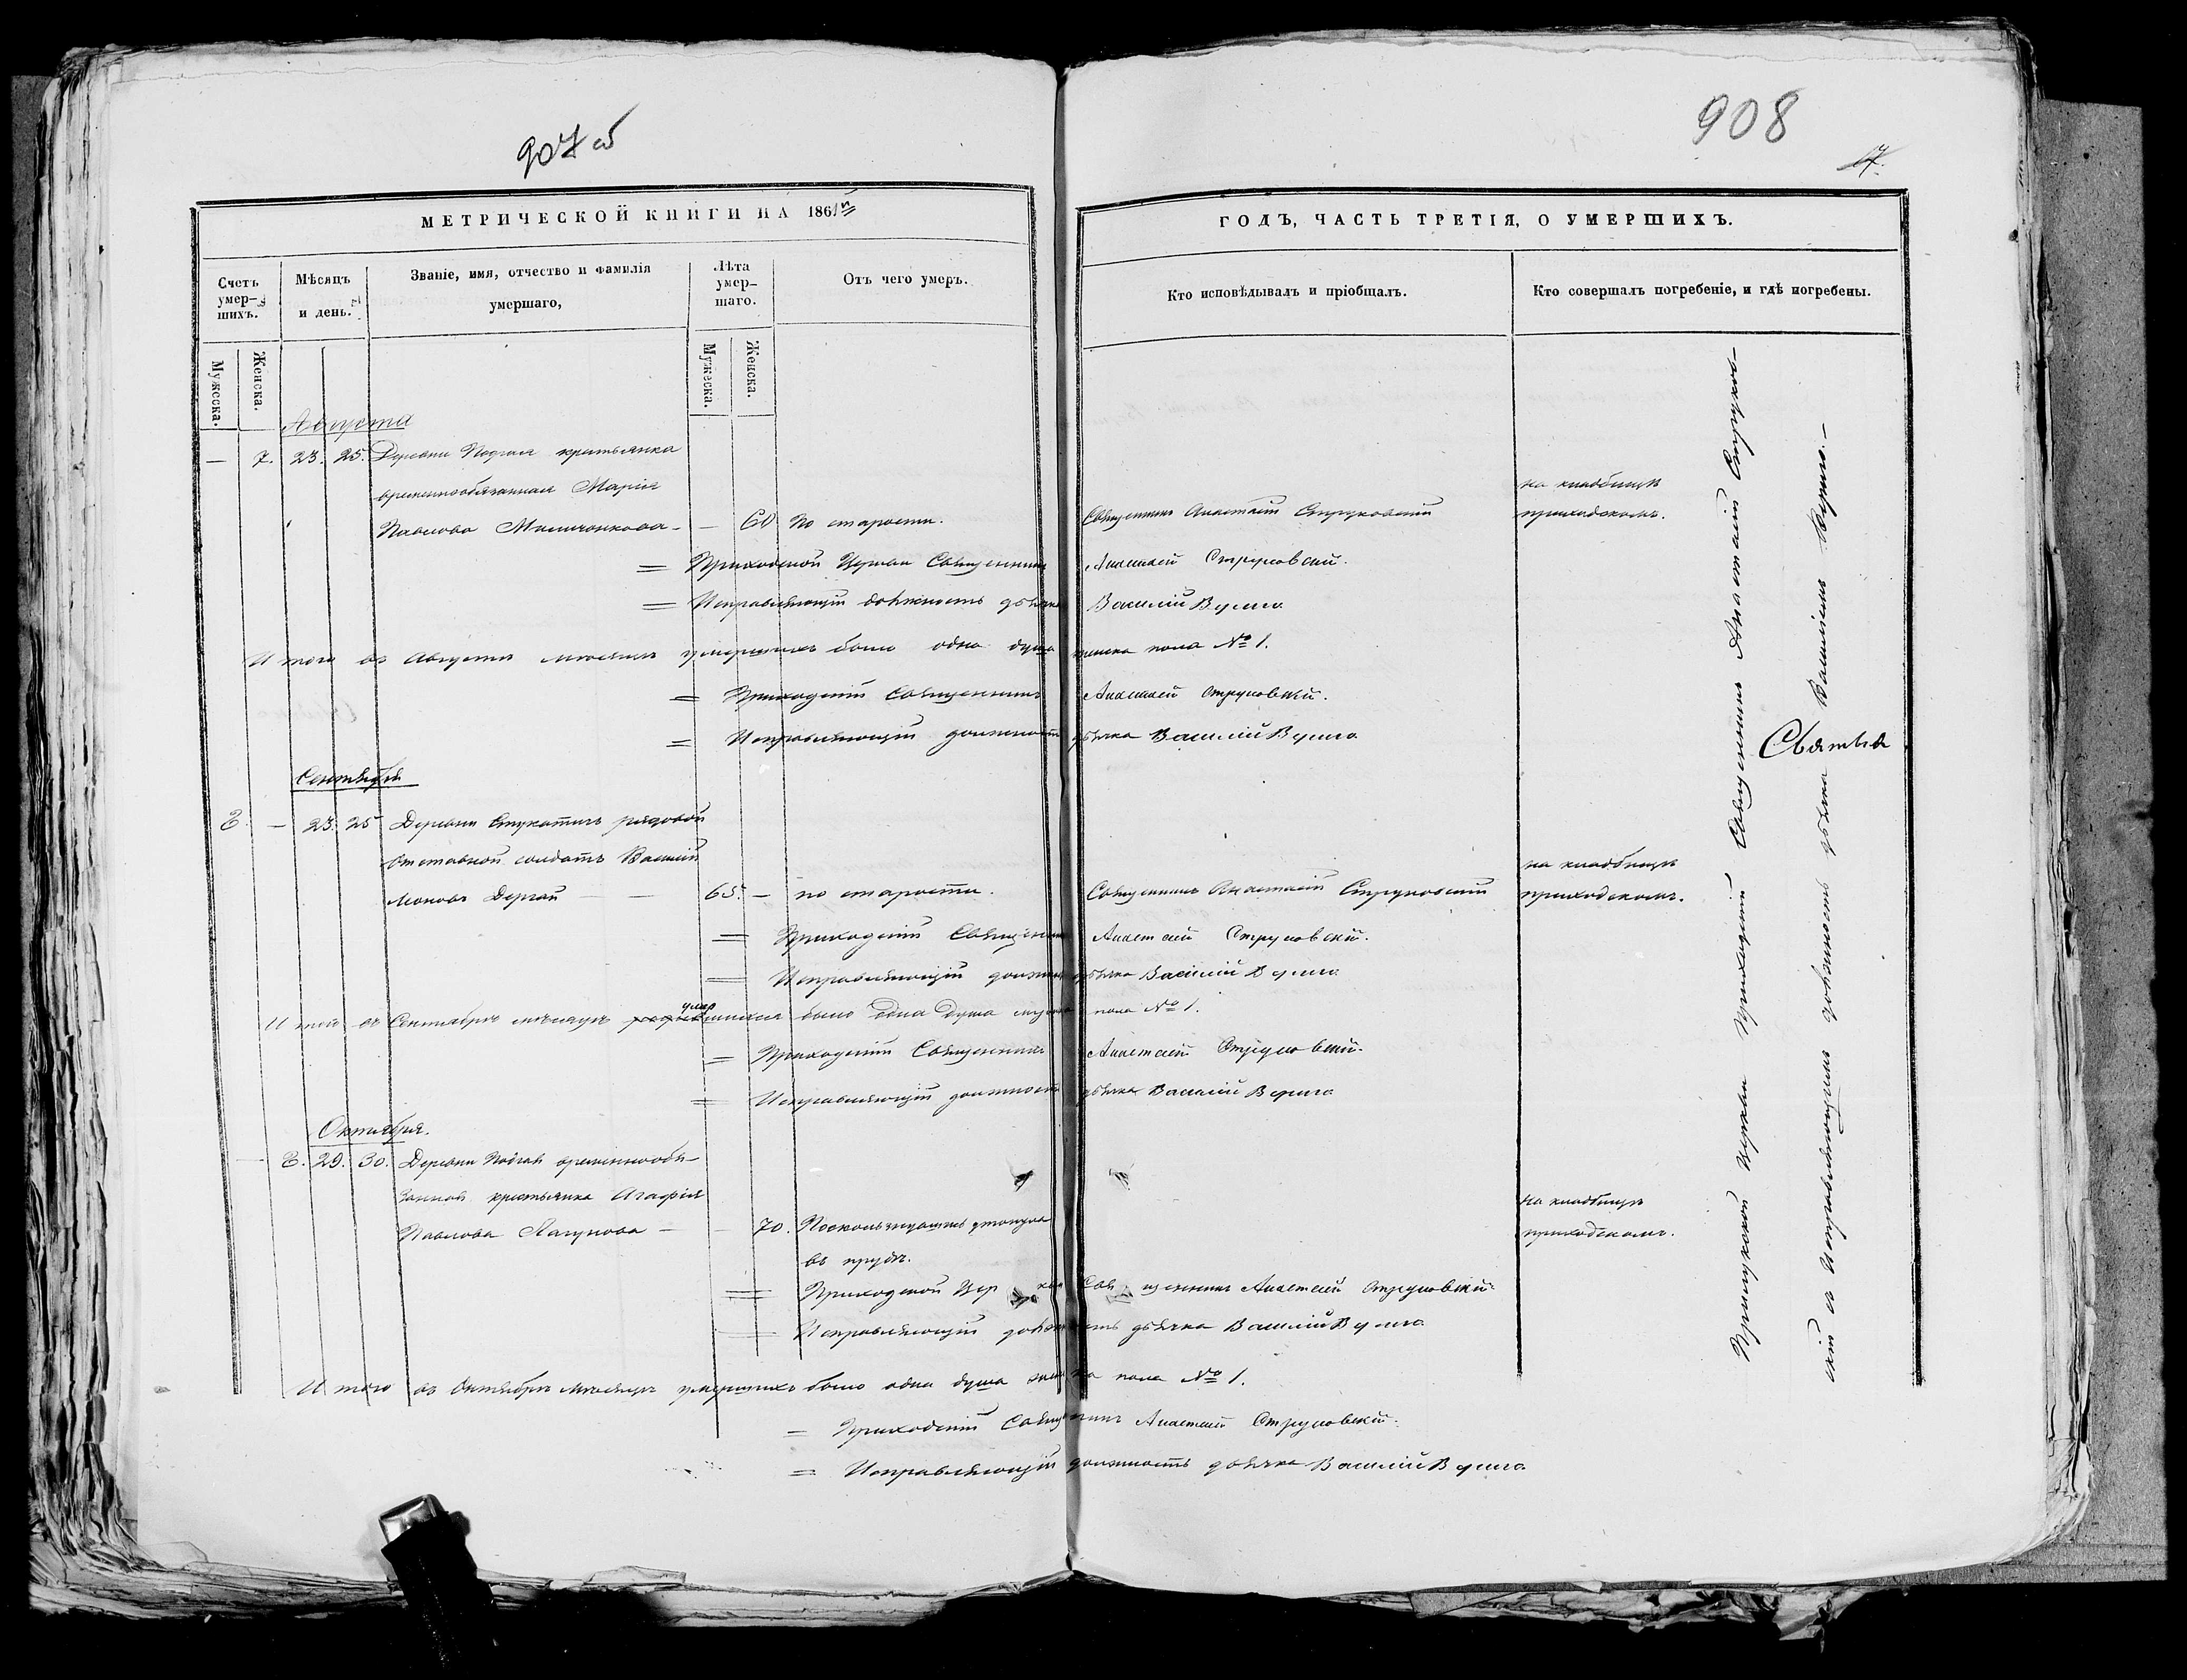 907 об
908
17.
МЕТРИЧЕСКОЙ КНИГИ НА 1861й
ГОДЪ, ЧАСТЬ ТРЕТІЯ, О УМЕРШИХЪ.
Счетъ умер-шихъ.
Мѣсяцъ и день.
Званіе, имя, отчество и фамилія умершаго,
Лѣта умер-шаго.
Отъ чего умеръ.
Кто исповѣдывалъ и пріобщалъ.
Кто совершалъ погребеніе, и гдѣ погребены.
Мужеска.
Женска.
Мужеска.
Женска.
Августа
— 7. 23. 25. Деревни крестьянка
временнообязанная Марія
на кладбищѣ
Павлова — 60 По старости. Священникъ Анастасій Струковскій приходскомъ.
= Приходской Церкви Священникъ Анастасій Струковскій.
= Исправляющій должность дьячка Василій
Итого въ Августѣ мѣсяцѣ умершихъ было одна душа женска пола № 1.
= Приходскій Священникъ Анастасій Струковскій.
= Исправляющій должность дьячка Василій
Сентября
— 23. 25 Деревни рядовой
Отставной солдатъ Василій
на кладбищѣ
— — 65. — по старости. Священникъ Анастасій Струковскій приходскомъ.
= Приходскій Священникъ Анастасій Струковскій.
= Исправляющій должность дьячка Василій
умер
Итого въ Сентябрѣ мѣсяцѣ было одна душа мужеска пола № 1.
= Приходскій Священникъ Анастасій Струковскій.
= Исправляющій должность дьячка Василій
Октября.
29. 30. Деревни временнообя-
занная крестьянка Агафія
на кладбищѣ
Павлова — — 70. Поскользнувшись утонула приходскомъ.
въ прудѣ.
= Приходской Церкви Священникъ Анастасій Струковскій.
= Исправляющій должность дьячка Василій
Итого въ Октябрѣ мѣсяцѣ умершихъ было одна душа женска пола № 1.
= Приходскій Священникъ Анастасій Струковскій.
= Исправляющій должность дьячка Василій
Церкви Приходскій Священникъ Анастасій Струков-
скій съ Исправляющимъ должность дьячка Василіемъ